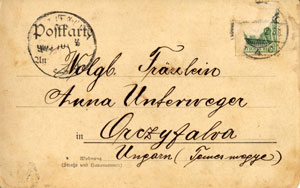 Postkarte
An
Wolgb. Fräulein
Anna Unterweger
in
Orczyfalva
Ungarn (Temesmegye)
Wohnung
(Straße und Hausnummer)